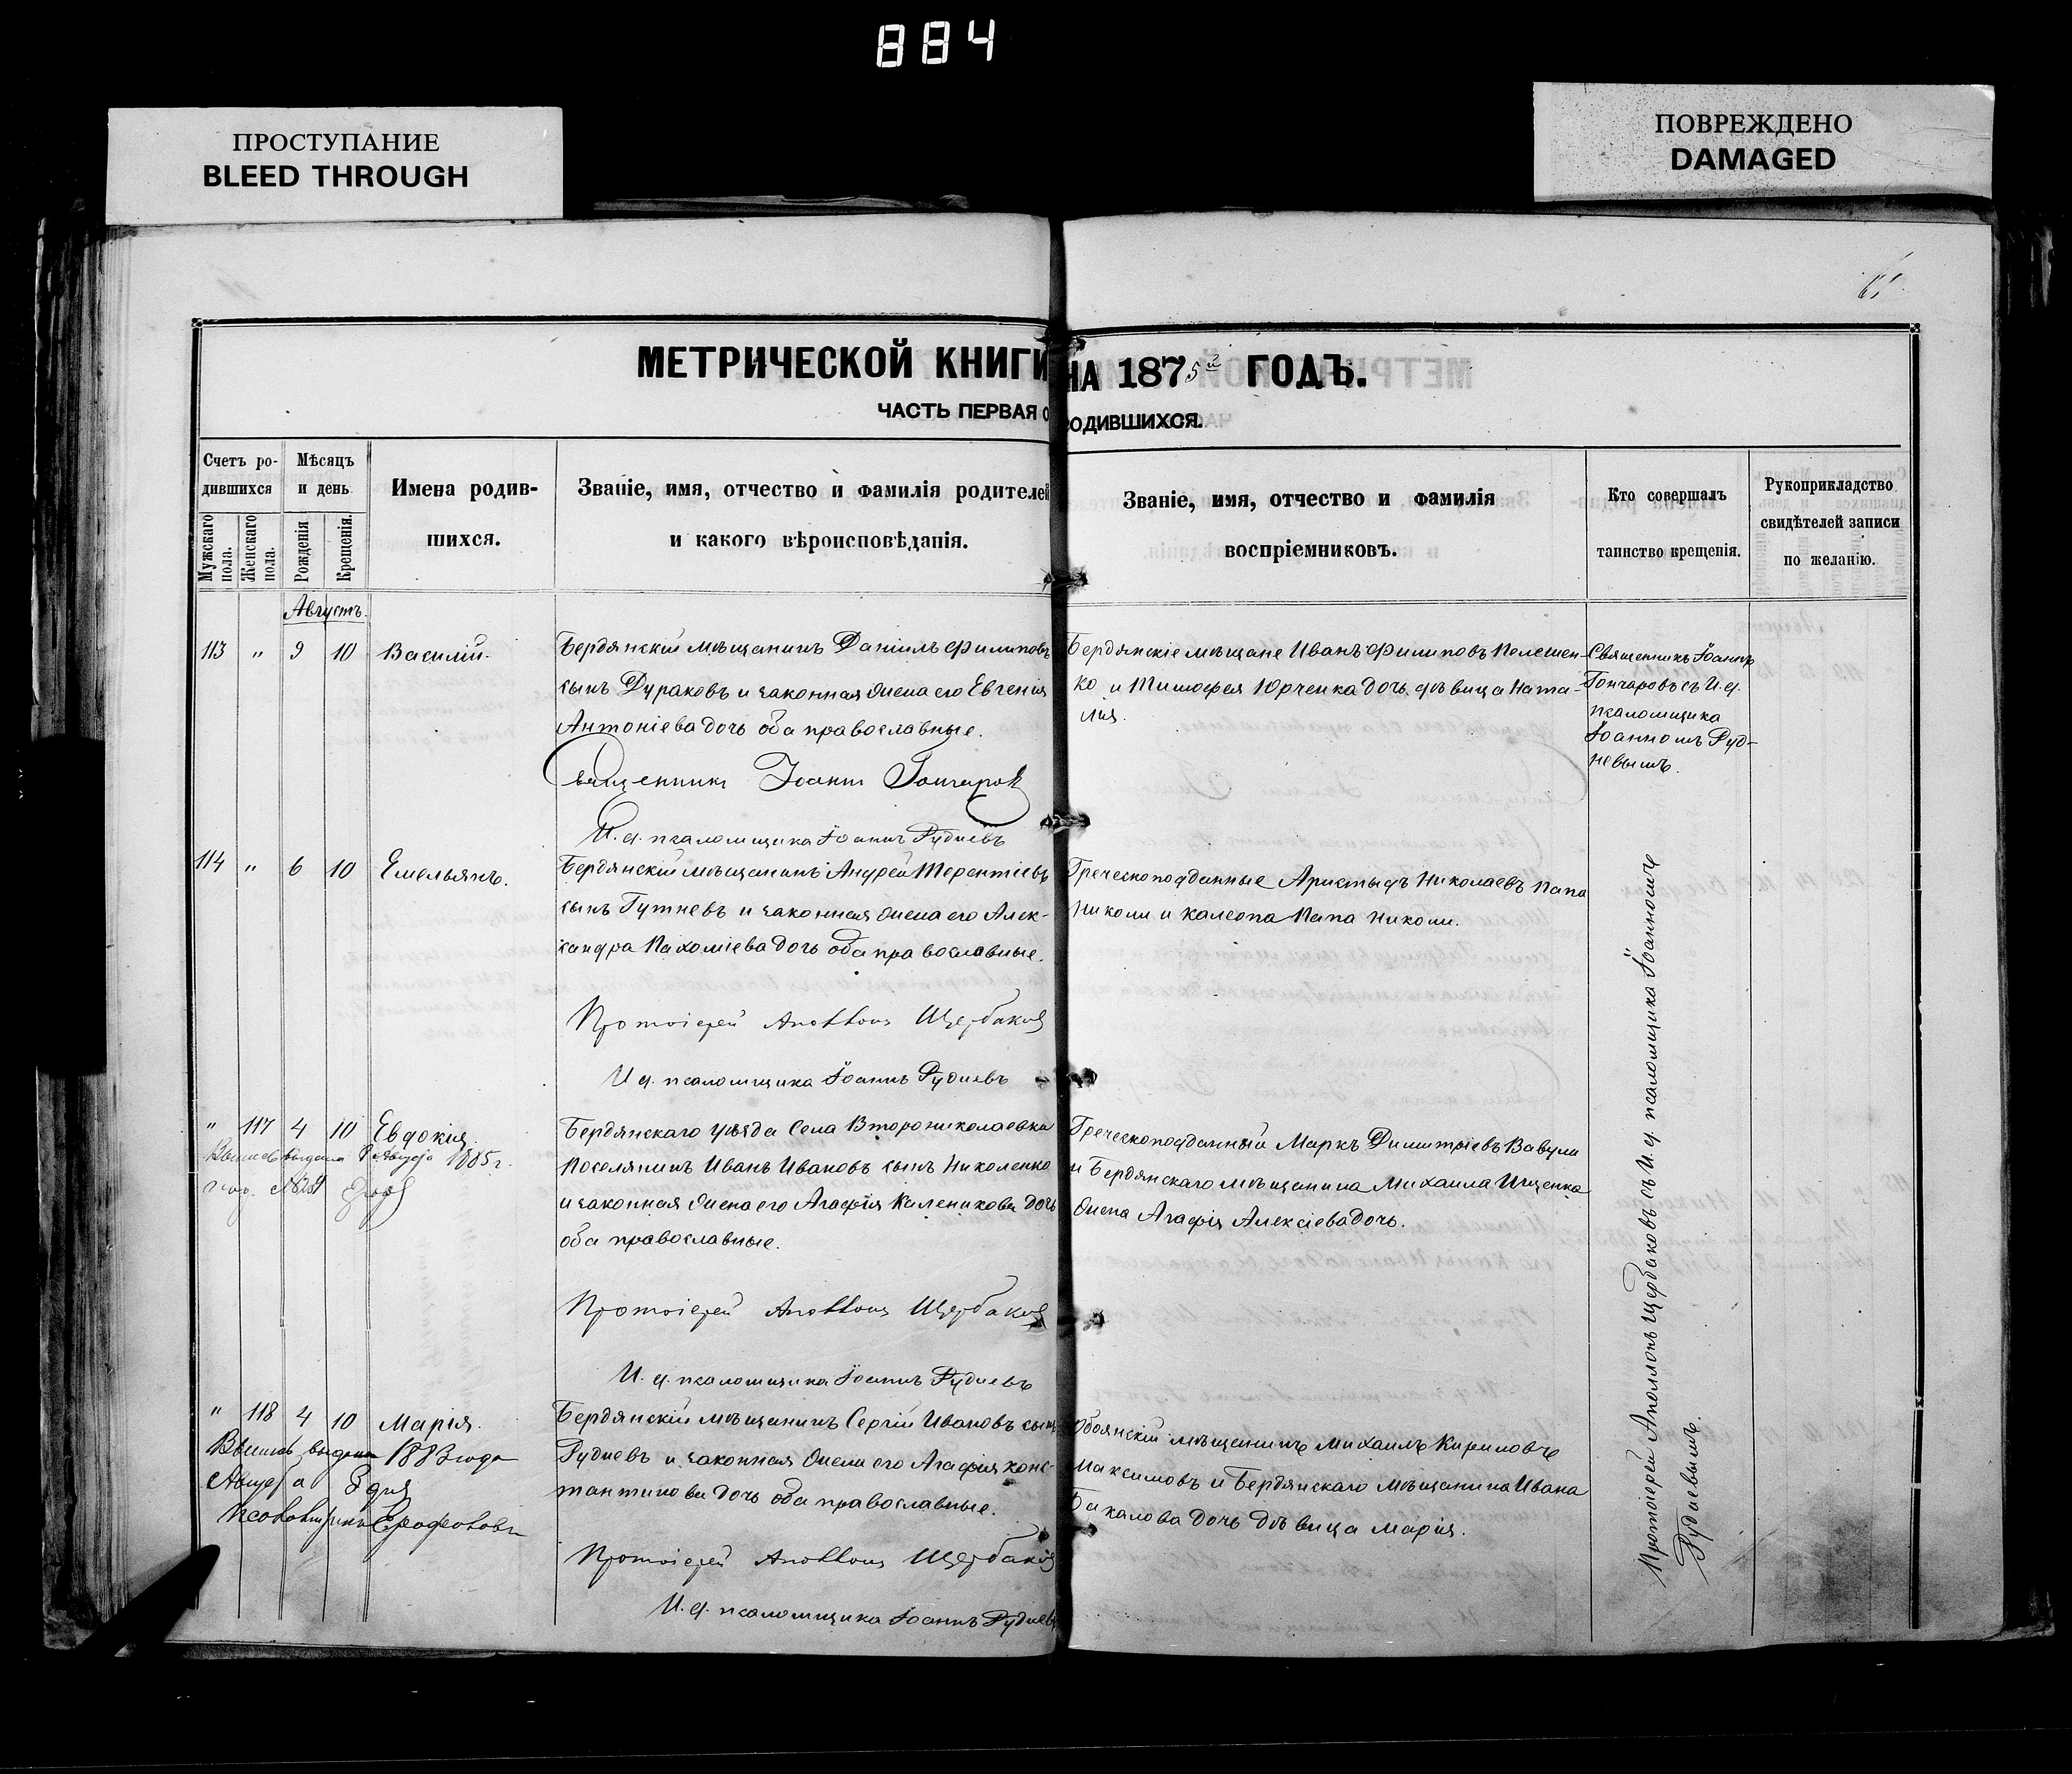 884
ПРОСТУПАНИЕ
BLEED THROUGH
ПОВРЕЖДЕНО
DAMAGED
МЕТРИЧЕСКОЙ КНИГИ НА 1875й ГОДЪ.
ЧАСТЬ ПЕРВАЯ О РОДИВШИХСЯ.
Счетъ ро-
дившихся
Мужскаго пола.
Женскаго пола.
Мѣсяцъ
и день
Рожденія
Крещенія.
Имена родив-
шихся.
Званіе, имя, отчество и фамилія родителей
и какого вѣроисповѣданія.
Званіе, имя, отчество и фамилія
воспріемниковъ.
Кто совершалъ
таинство крещенія.
Рукоприкладство
свидѣтелей записи
по желанію.
Августъ.
113 " 9 10 Василій.
Бердянскій мѣщанинъ Даніилъ Филиповъ
сынъ Дураковъ и законная жена его Евгенія
Антоніева дочь оба православные.
Бердянскіе мѣщане Иванъ Филиповъ Пелешен-
ко и Тимофея Юрченка дочь дѣвица Ната-
лія.
Священникъ Іоаннъ
Гончаровъ съ И.д.
псаломщика
Іоанномъ Руд-
невымъ.
Священникъ Іоаннъ Гончаровъ
И.д. псаломщика Іоаннъ Рудневъ
114 " 6 10 Емельянъ.
Бердянскій мѣщанинъ Андрей Терентіевъ
сынъ Гутневъ и законная жена его Алек-
сандра Пахоміева дочь оба православные.
Греческоподданные Аристыдъ Николаевъ Папа
Николи и Калеопа Папа Николи.
Протоіерей Аполлонъ Щербаковъ
И.д. псаломщика Іоаннъ Рудневъ
" 117 4 10 Евдокія.
выдана 8 Августа 1885 г.
Бердянскаго уѣзда Села Второниколаевка
Поселянинъ Иванъ Ивановъ сынъ Николенко
и законная жена его Агафія Каленикова дочь
оба православные.
Греческоподданный Маркъ Димитріевъ Вавули
и Бердянскаго мѣщанина Михаила Ищенка
жена Агафія Алексіева дочь.
Протоіерей Аполлонъ Щербаковъ
И.д. псаломщика Іоаннъ Рудневъ
" 118 4 10 Марія.
выдана 1883 года
Августа 8 дня
Бердянскій мѣщанинъ Сергій Ивановъ сынъ
Рудневъ и законная жена его Агафія Конс-
тантинова дочь оба православные.
Обоянскій мѣщанинъ Михаилъ Кириловъ
Максимовъ и Бердянскаго мѣщанина Ивана
Бакалова дочь дѣвица Марія.
Протоіерей Аполлонъ Щербаковъ
И.д. псаломщика Іоаннъ Рудневъ
Протоіерей Аполлонъ Щербаковъ съ И.д. псаломщика Іоанномъ
Рудневымъ.